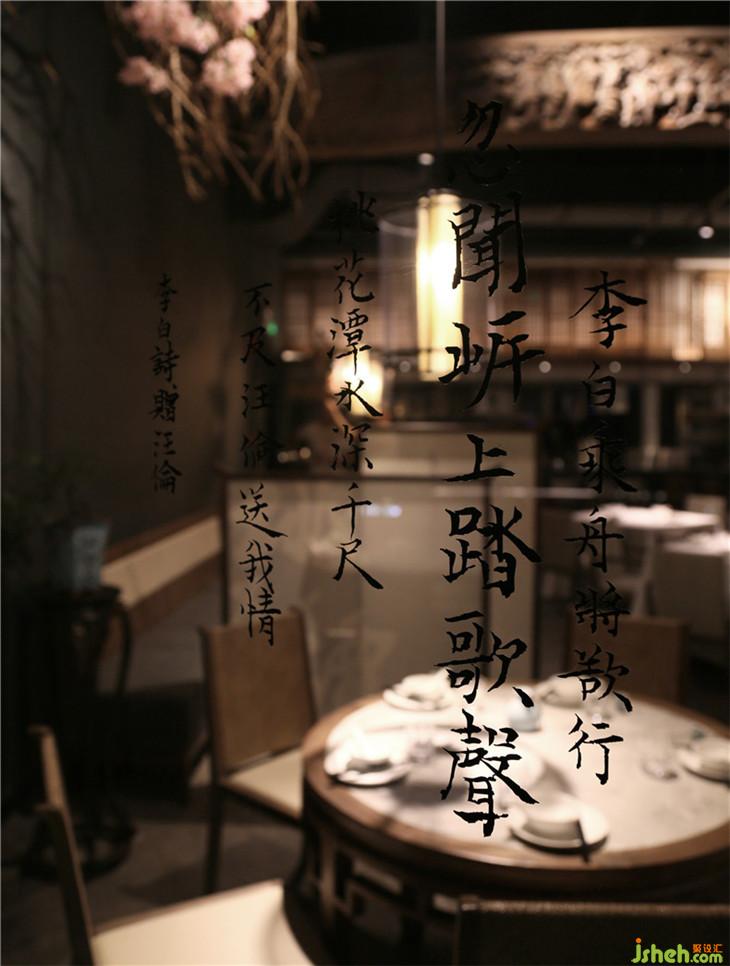 李白乘舟將欲行
忽聞岸上踏歌聲
桃花潭水深千尺
不及汪倫送我情
李白詩贈汪倫
聚设汇
jsheh.com